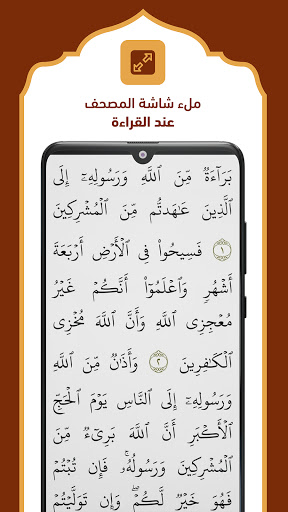 ملء شاشة المصحف
عند القراءة
بَرَآءَةٌ مِّنَ ٱللَّهِ وَرَسُولِهِۦٓ إِلَى
ٱلَّذِينَ عَٰهَدتُّم مِّنَ ٱلْمُشْرِكِينَ
١ فَسِيحُوا۟ فِى ٱلْأَرْضِ أَرْبَعَةَ
أَشْهُرٍ وَٱعْلَمُوٓا۟ أَنَّكُمْ غَيْرُ
مُعْجِزِى ٱللَّهِ وَأَنَّ ٱللَّهَ مُخْزِى
ٱلْكَٰفِرِينَ ٢ وَأَذَٰنٌ مِّنَ ٱللَّهِ
وَرَسُولِهِۦٓ إِلَى ٱلنَّاسِ يَوْمَ ٱلْحَجِّ
ٱلْأَكْبَرِ أَنَّ ٱللَّهَ بَرِىٓءٌ مِّنَ
ٱلْمُشْرِكِينَ وَرَسُولُهُۥ ۚ فَإِن تُبْتُمْ
فَهُوَ خَيْرٌ لَّكُمْ ۖ وَإِن تَوَلَّيْتُمْ